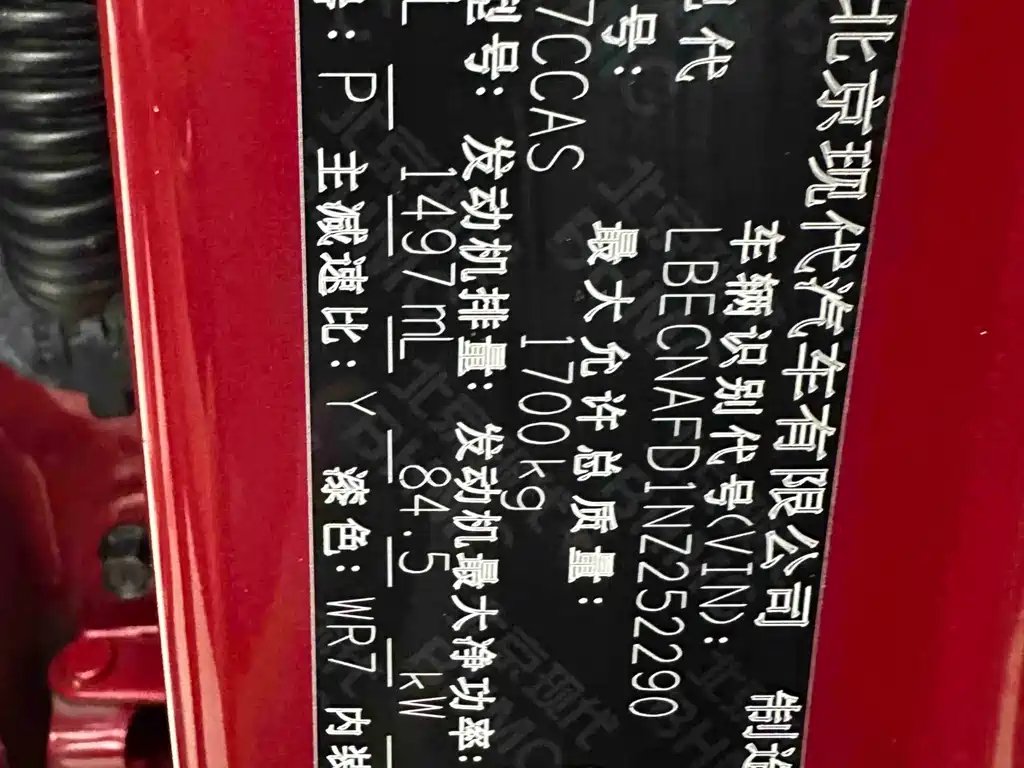 北京现代汽车有限公司 制造
现代
车辆识别代号(VIN):
LBECNAFD1NZ252290
号: 最大允许总质量:
7CCAS 1700kg
型号: 发动机排量: 发动机最大净功率:
L 1497mL 84.5 kW
号: P 主减速比: Y 漆色: WR7 内装